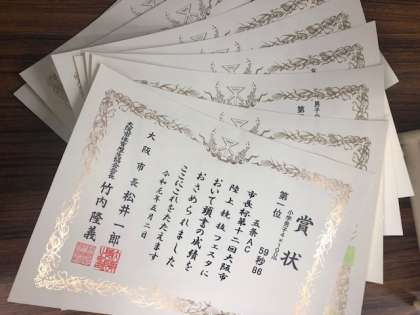 賞状
第一位
小学男子4×100R
五条AC
59秒86
市長杯第十二回大阪市
陸上競技フェスタに
おいて頭書の成績を
おさめられました
ここにこれをたたえます
令和元年五月二日
大阪市長 松井一郎
竹内隆義